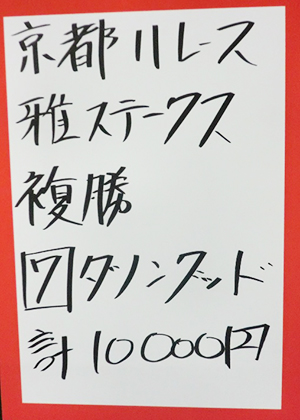 京都11レース
雅ステークス
複勝
7ダノングッド
計10000円